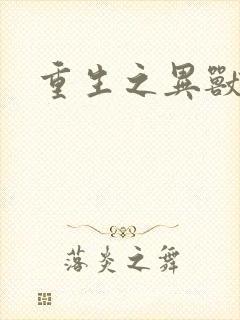 重生之異獸
落炎之舞